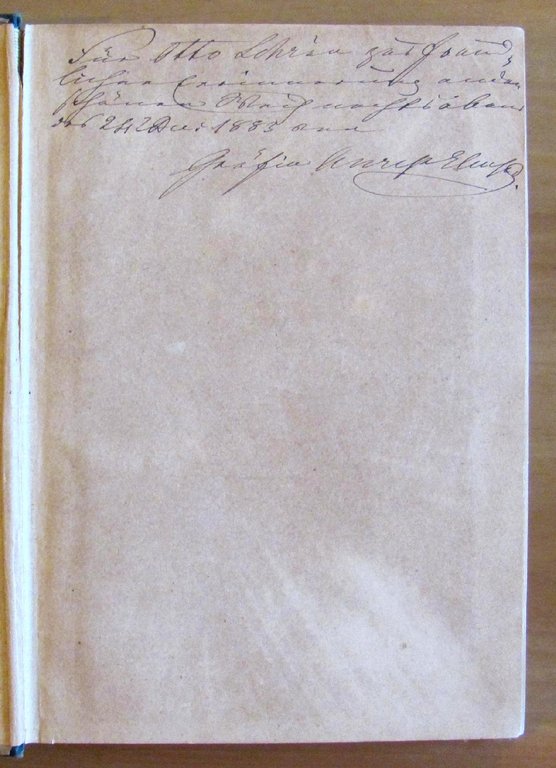 Für Otto Schrön zur freund-
lichen Erinnerung an den
schönen Weihnachtsabend
des 24 Dec: 1885 von
Gräfin